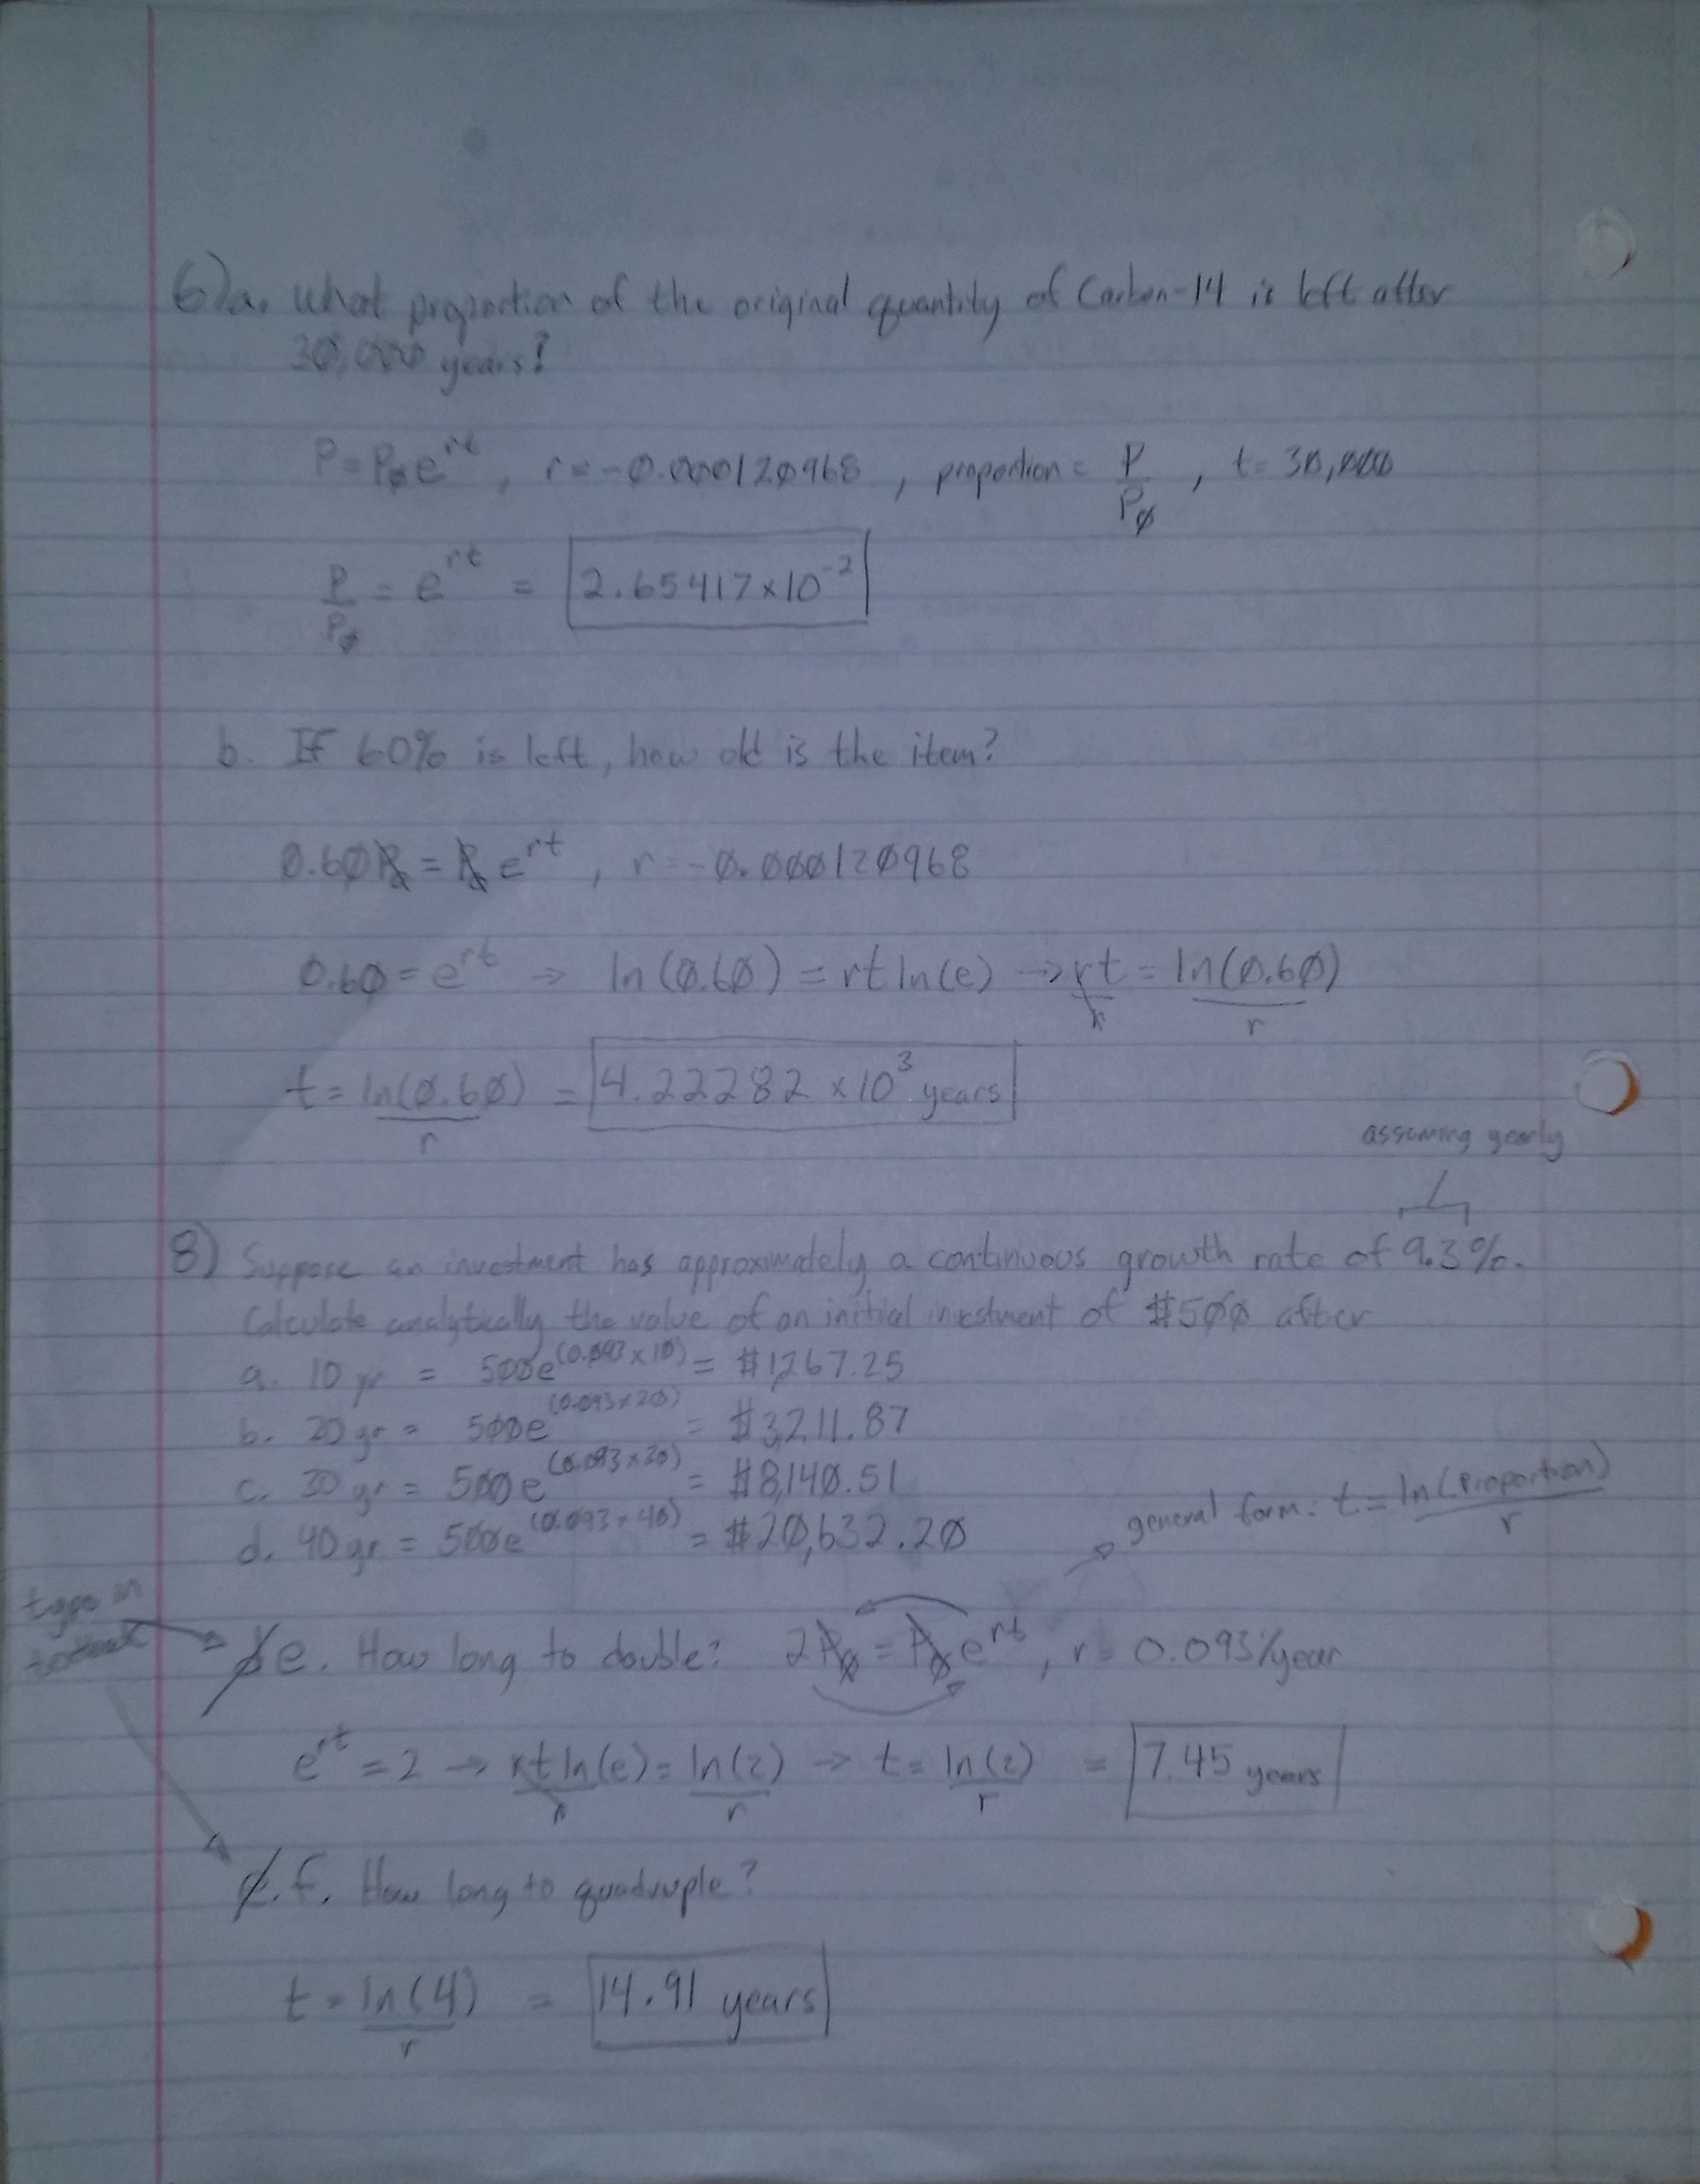 6) a. What proportion of the original quantity of Carbon-14 is left after
30,000 years?
P = P₀e^rt , r = -0.000120968 , proportion = P/P₀ , t = 30,000
P/P₀ = e^rt = 2.65417 × 10^-2
b. If 60% is left, how old is the item?
0.60P₀ = P₀e^rt , r = -0.000120968
0.60 = e^rt → ln(0.60) = rt ln(e) → rt/r = ln(0.60)/r
t = ln(0.60)/r = 4.22282 × 10^3 years
assuming yearly
8) Suppose an investment has approximately a continuous growth rate of 9.3%.
Calculate analytically the value of an initial investment of $500 after
a. 10 yr = 500e^(0.093×10) = $1,267.25
b. 20 yr = 500e^(0.093×20) = $3,211.87
c. 30 yr = 500e^(0.093×30) = $8,140.51
d. 40 yr = 500e^(0.093×40) = $20,632.20
general form: t = ln(proportion)/r
typo in
textbook
e. How long to double? 2P₀ = P₀e^rt , r = 0.093/year
e^rt = 2 → rt ln(e)/r = ln(2)/r → t = ln(2)/r = 7.45 years
f. How long to quadruple?
t = ln(4)/r = 14.91 years